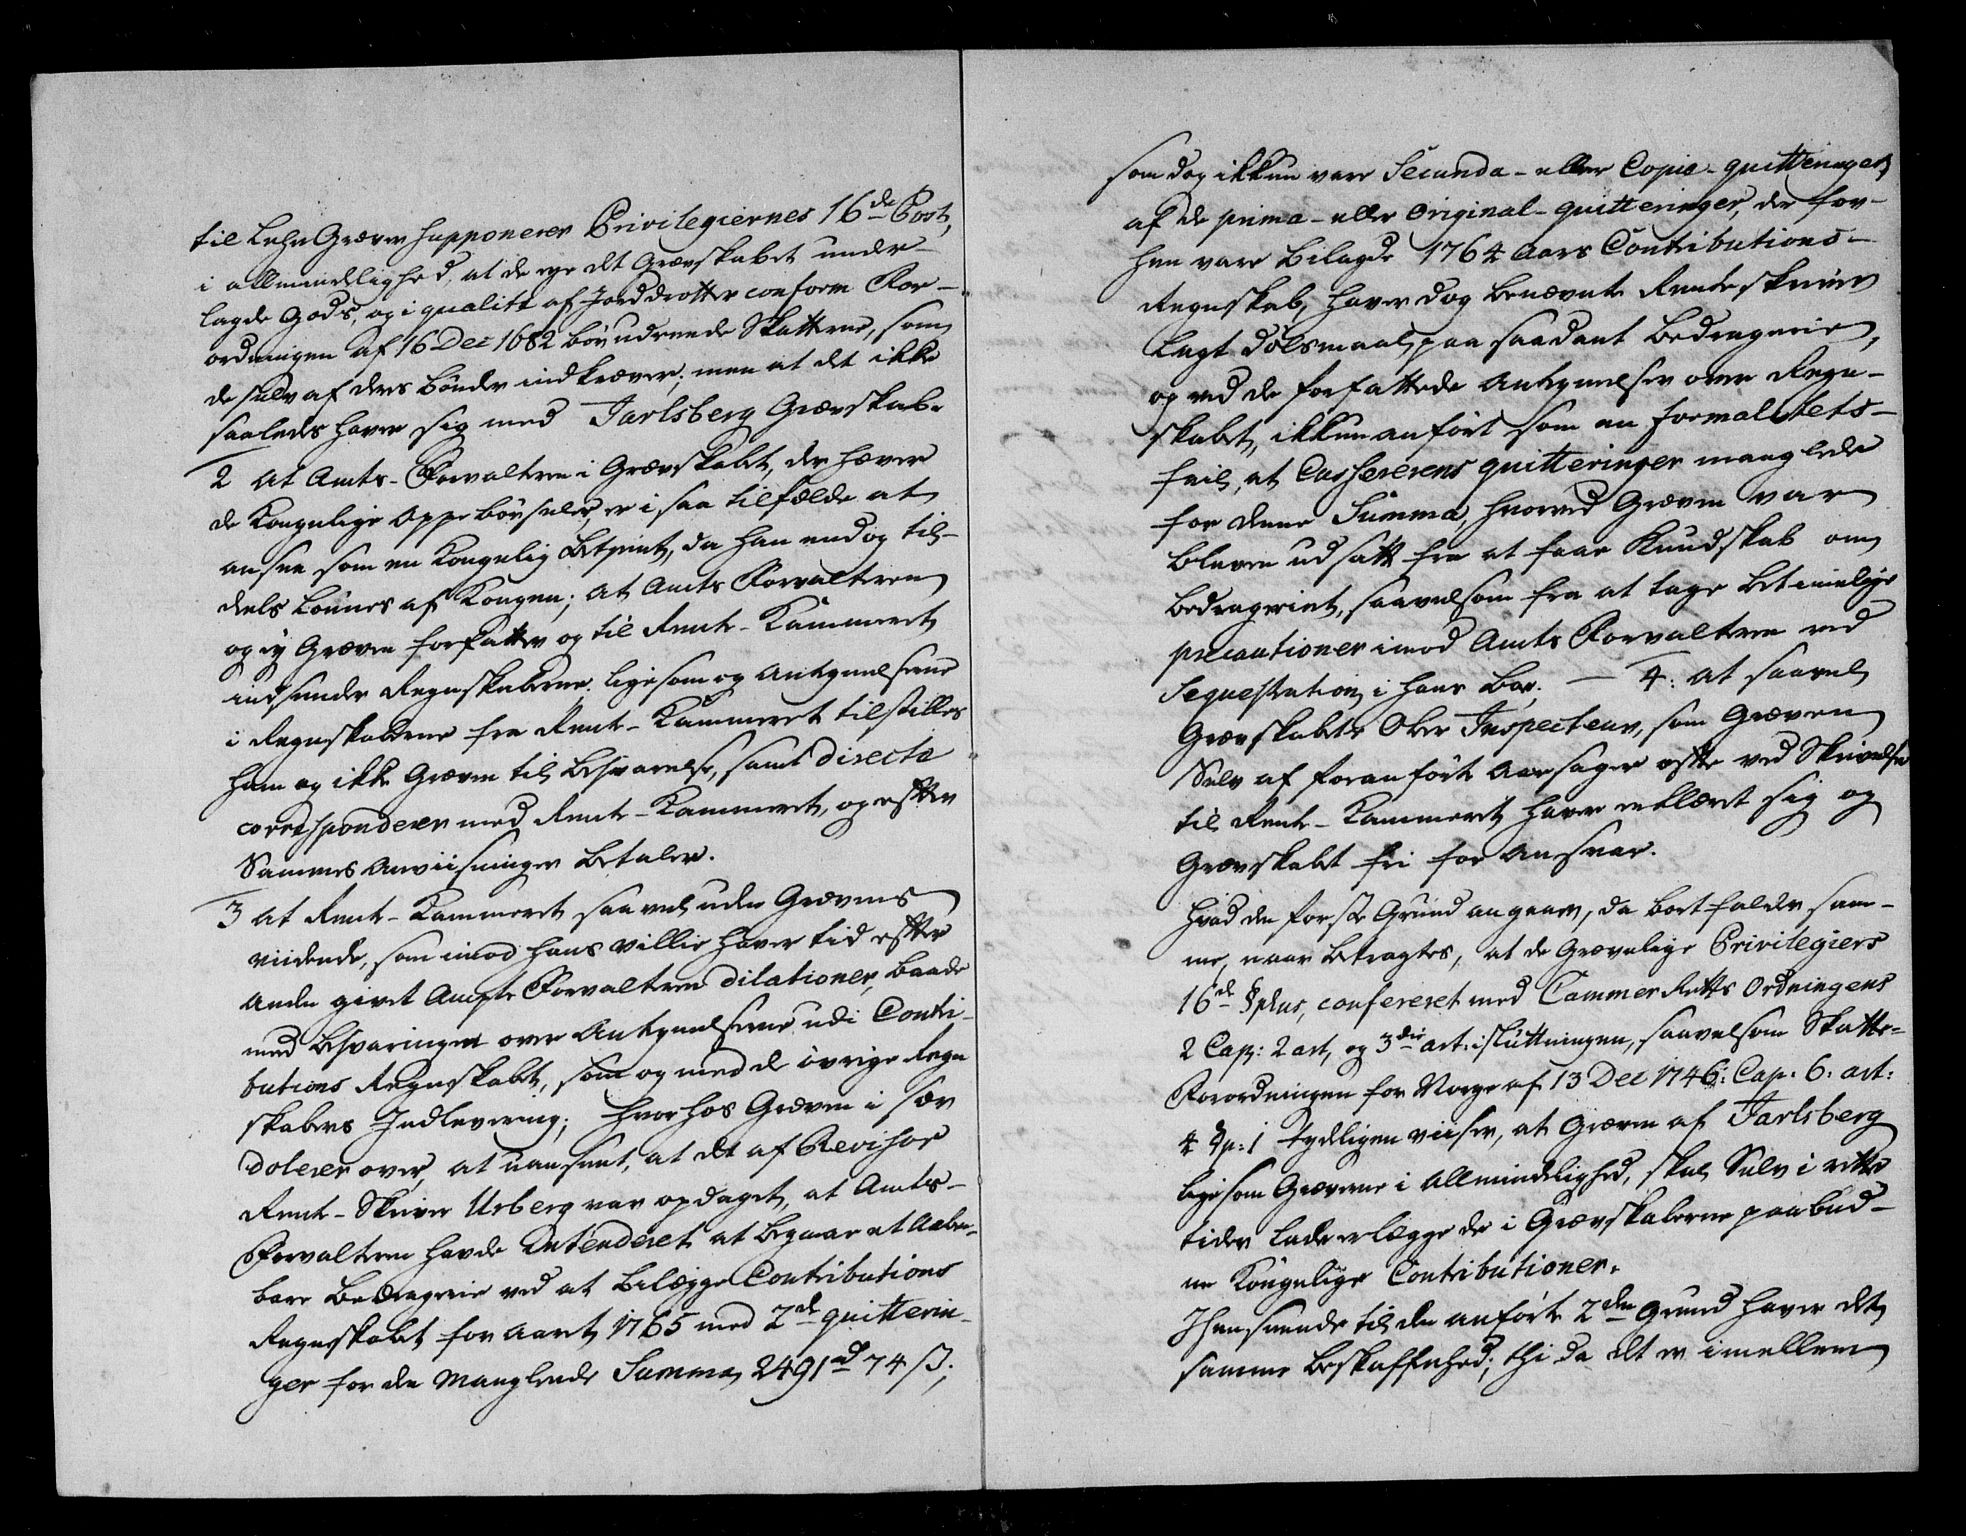 til Lehn Græver supponerer Privilegiernes 16de Post,
i allmindelighed, at de eye det Grævskabet under-
lagde Gods, og i qualité af Jorddrotter conform For-
ordningen af 16 Dec 1682 bør udreede Skatterne, som
de selv af deres Bønder indkræver; men at det ikke
saaledes haver sig med Jarlsberg Grævskab.
2 At Amts-Forvalteren i Grævskabet, der hæver
de Kongelige Oppebørseler, er i saa tilfælde at
ansee som en Kongelig Betient, da han endog til-
dels lønnes af Kongen; at Amts Forvalteren
og ey Græven forfatter og til Rente-Kammeret
indsender Regnskaberne, ligesom og Antegnelserne
i Regnskaberne fra Rente-Kammeret tilstilles
ham og ikke Græven til Besvarelse, samt directe
corresponderer med Rente-Kammeret, og efter
Sammes Anviisninger betaler.
3 At Rente-Kammeret saavel uden Grævens
viidende, som imod hans villie haver tid efter
anden givet Ampts Forvalteren dilationer, baade
med Besvaringen over Antegnelserne udi Contri-
butions Regnskabet, som og med de øvrige Regn
skabers Indlevering; hvorhos Græven i sær
dolerer over, at uanseet, at det af Revisor
Rente-Skriver Urberg var opdaget, at Amts-
Forvalteren havde Intenderet at begaae et Aaben-
bare Bedragerie ved at bilægge Contributions
Regnskabet for Aaret 1765 med 2de quitterin-
ger for den manglende Summa, 2491 rd 74 s;
som dog ikkun vare Secunda- eller Copie-quitteringer
af de prima- eller Original-quitteringer, der for-
hen vare bilagde 1764 Aars Contributions-
Regnskab, haver dog benævnte Renteskriver
lagt dølsmaal paa saadant Bedragerie,
og ved de forfattede Antegnelser over Regn-
skabet, ikkun anført som en formalitets-
feil, at Cassererens quitteringer manglede
for denne Summa, hvorved Græven var
bleven udsatt fra at faae Kundskab om
Bedrageriet, saavelsom fra at tage betimelige
precautioner imod Amts Forvalteren ved
Sequestration i hans Boe. — 4: at saavel
Grævskabets Ober Inspecteur, som Græven
Selv af foranførte Aarsager ofte ved Skrivelse
til Rente-Kammeret haver erklæret sig og
Grævskabet fri for Ansvar.
Hvad den første Grund angaaer, da bortfalder sam-
me, naar betragtes, at de Grævelige Privilegiers
16de §phus, confereret med Cammer Retts Ordningens
2 Cap: 2 art, og 3die art: i slutningen, saavelsom Skatte-
Forordningen for Norge af 13 Dec 1746: Cap: 6: art:
4 §p: 1 tydeligen viiser, at Græven af Jarlsberg
ligesom Græverne i Allmindelighed, skal Selv i rette
tider lade erlægge de i Grævskaberne paabud-
ne Kongelige Contributioner.
I henseende til den anførte 2den Grund haver det
samme Beskaffenhed; thi da det er imellem